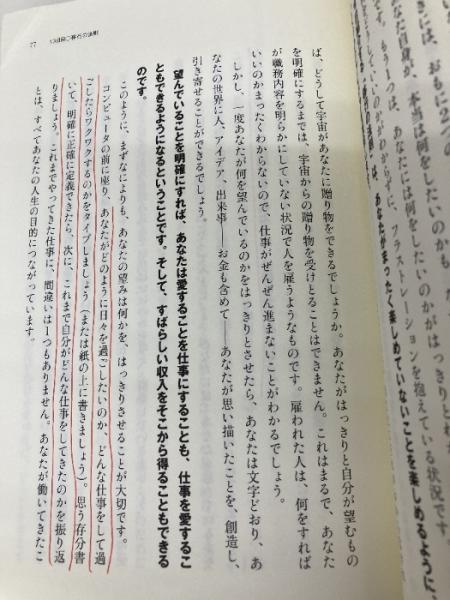 77
ば、どうして宇宙があなたに贈り物をできるでしょうか。あなたがはっきりと自分が望むもの
を明確にするまでは、宇宙からの贈り物を受けとることはできません。これはまるで、あなた
が職務内容を明らかにしていない状況で人を雇うようなものです。雇われた人は、何をすれば
いいのかまったくわからないので、仕事がぜんぜん進まないことがわかるでしょう。
しかし、一度あなたが何を望んでいるのかをはっきりとさせたら、あなたは文字どおり、あ
なたの世界に人、アイデア、出来事——お金も含めて——あなたが思い描いたことを、創造し、
引き寄せることができるでしょう。
望んでいることを明確にすれば、あなたは愛することを仕事にすることも、仕事を愛するこ
ともできるようになるということです。そして、すばらしい収入をそこから得ることもできる
のです。
このように、まずなによりも、あなたの望みは何かを、はっきりさせることが大切です。
コンピュータの前に座り、あなたがどのように日々を過ごしたいのか、どんな仕事をして過
ごしたらワクワクするのかをタイプしましょう（または紙の上に書きましょう）。思う存分書
いて、明確に正確に定義できたら、次に、これまで自分がどんな仕事をしてきたのかを振り返
りましょう。これまでやってきた仕事に、間違いは1つもありません。あなたが働いてきたこ
とは、すべてあなたの人生の目的につながっています。